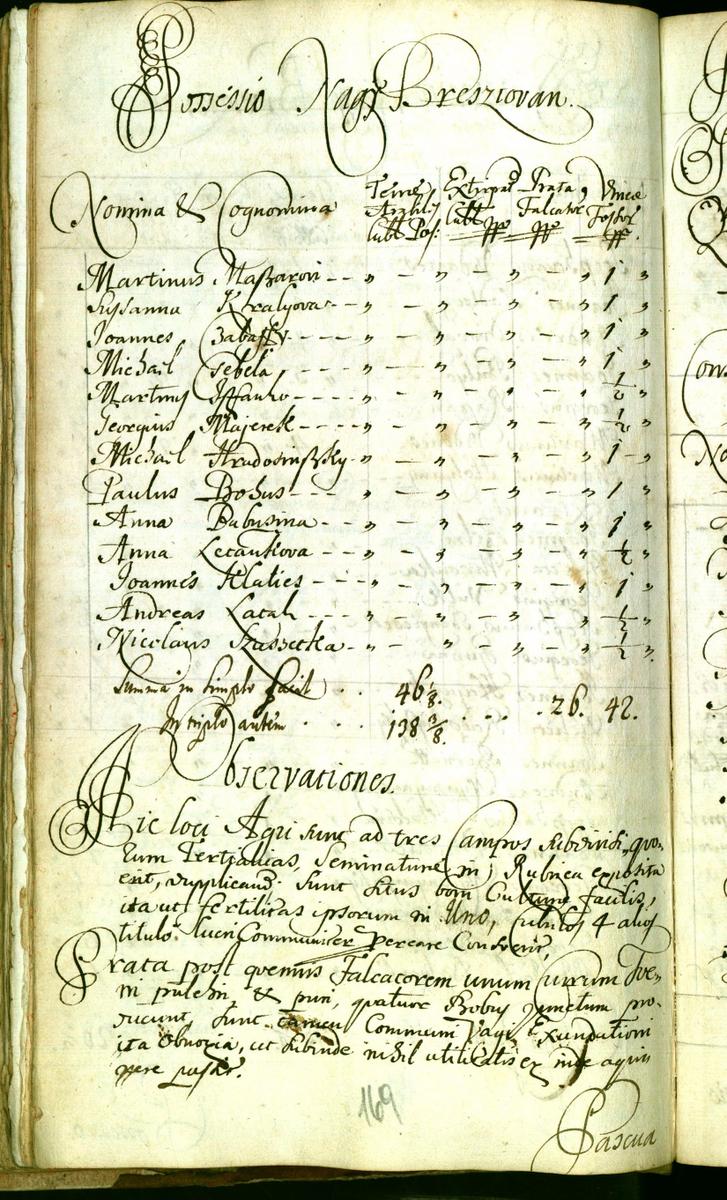 Possessio Nagy Bresztovan.
Nomina & Cognomina
Terræ Arabiles cubl. Pos:
Extirpat cubl.
Prata Falcator
Vineæ Fossor
Martinus Maszarovi - - " - " - " - " 1 "
Susanna Kralyova - - " - " - " - " 1 "
Joannes Czabaffy - - - " - " - " - " 1 "
Michail Csebela - - - " - " - " - " 1 "
Martinus Istfanko - - - - " - " - " - " 1/2 "
Georgius Majerek - - - - " - " - " - " 1/2 "
Michael Hradosinszky - " - " - " - " 1 "
Paulus Bohus - - - " - " - " - " 1 "
Anna Babusina - - - " - " - " - " 1 "
Anna Lecankova - - - " - " - " - " 1/2 "
Joannes Klaties - - - - " - " - " - " 1 "
Andreas Lacah - - - " - " - " - " 1/2 "
Nicolaus Szassecka - " - " - " - " 1/2 "
Summa in Simplo facit . . 46 1/8. 26. 42.
In triplo autem . . . 138 3/8.
Observationes.
Hic loci Agri sunt ad tres Campos subdivisi, quo-
rum Tertialitas, Seminaturæ in Rubrica exposita
erit, applicand. sunt situs boni Culturæ facilis,
ita ut fertilitas ipsorum in Uno, Cubulos 4 alios
titulo lucri Communiter
Prata post quemvis Falcatorem unum Currum Foe-
ni pulchri & puri, quatuor Bobus junctum pro-
ducunt, sunt tamen Communi Vagi Exundationi
ita obnoxia, ut subinde nihil utilitatis ex inde
169
Pascua